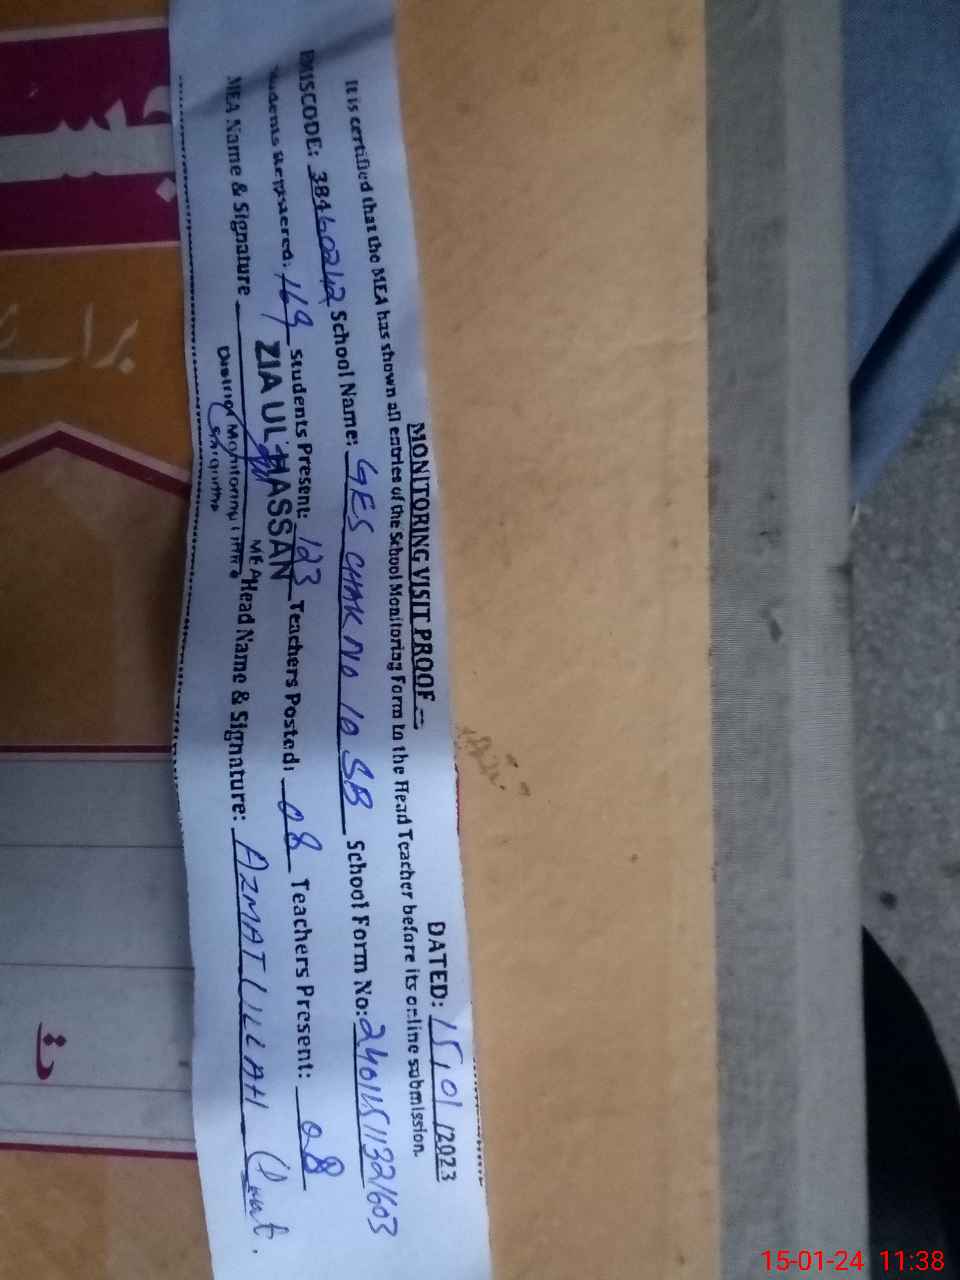 MONITORING VISIT PROOF =
DATED: 15/01/2023
It is certified that the MEA has shown all entries of the School Monitoring Form to the Head Teacher before its online submission.
EMISCODE: 38460242 School Name: GES CHAK NO 10 SB School Form No: 24011511321603
Students Registered: 169 Students Present: 123 Teachers Posted: 08 Teachers Present: 08
ZIA UL HASSAN
MEA
MEA Name & Signature Head Name & Signature: AZMAT ULLAH
District Monitoring
Sargodha
برائے
15-01-24 11:38